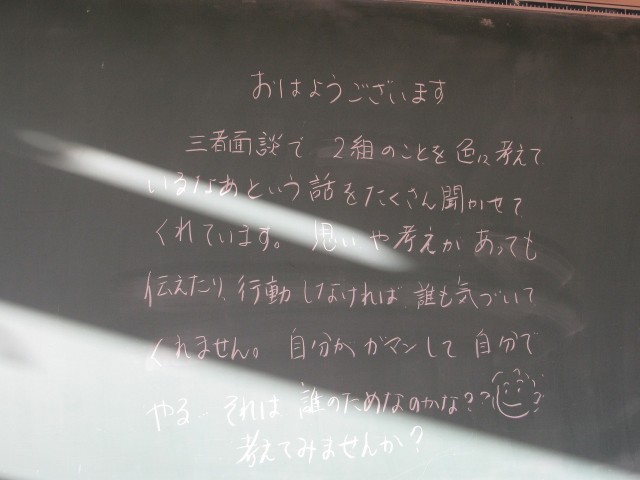 おはようございます
三者面談で 2組のことを色々考えて
いるなあという話をたくさん聞かせて
くれています。 思いや考えがあっても
伝えたり、行動しなければ、誰も気づいて
くれません。 自分がガマンして 自分で
やる、それは 誰のためなのかな??
考えてみませんか?